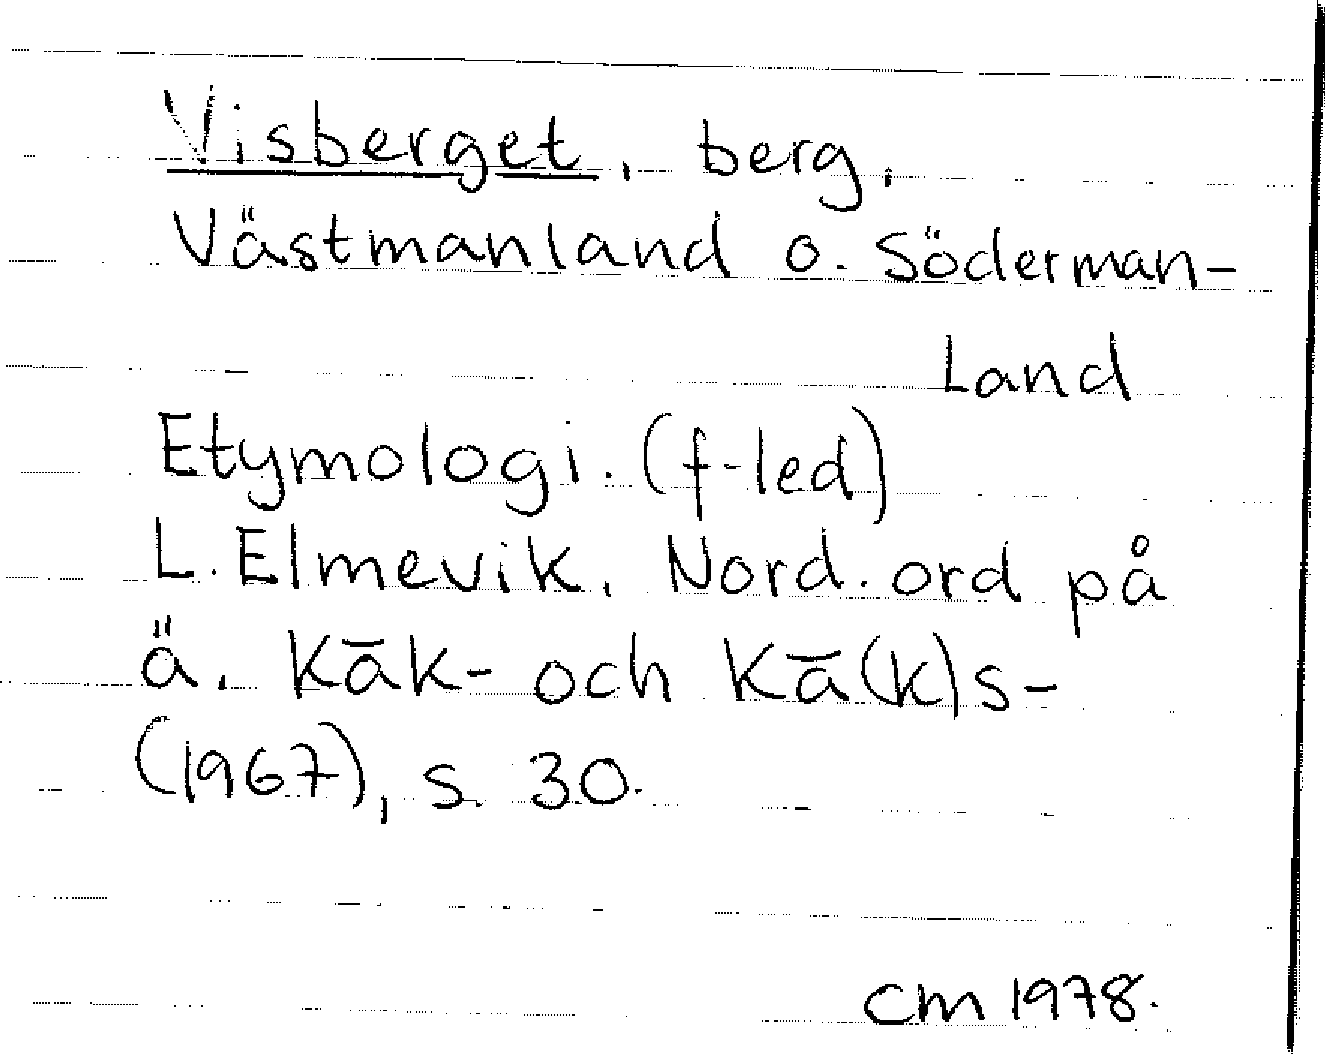 Visberget, berg,
Västmanland o. Söderman-
land
Etymologi. (f-led)
L. Elmevik, Nord. ord på
ä. kāk- och kā(k)s-
(1967), s. 30.
CM 1978.